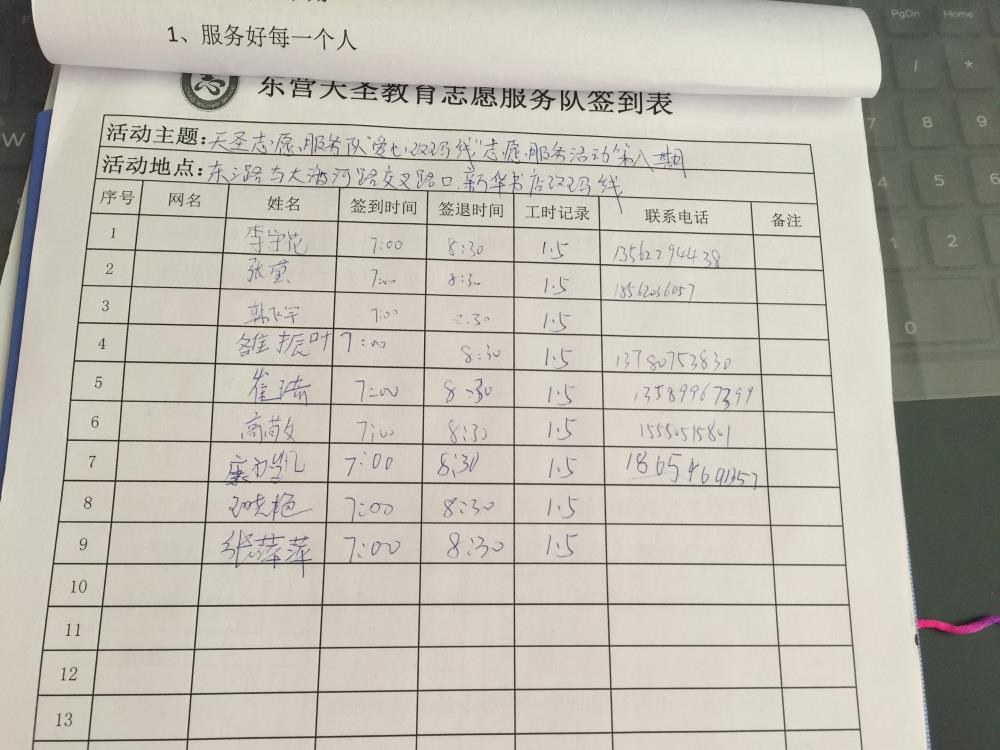 1、服务好每一个人
东营天圣教育志愿服务队签到表
活动主题:天圣志愿服务队"爱心斑马线"志愿服务活动第八期
活动地点:东三路与大渡河路交叉路口新华书店斑马线
序号 网名 姓名 签到时间 签退时间 工时记录 联系电话 备注
1 7:00 8:30 1.5 13562294438
2 张莹 7:00 8:30 1.5 18562036057
3 7:00 8:30 1.5
4 7:00 8:30 1.5 13780753830
5 崔涛 7:00 8:30 1.5 13589967399
6 高敬文 7:00 8:30 1.5 15550515801
7 7:00 8:30 1.5 18654691357
8 7:00 8:30 1.5
9 张萍萍 7:00 8:30 1.5
10
11
12
13
PgDn Home
/ *
7 8 9
4 5 6
1 2
0
W